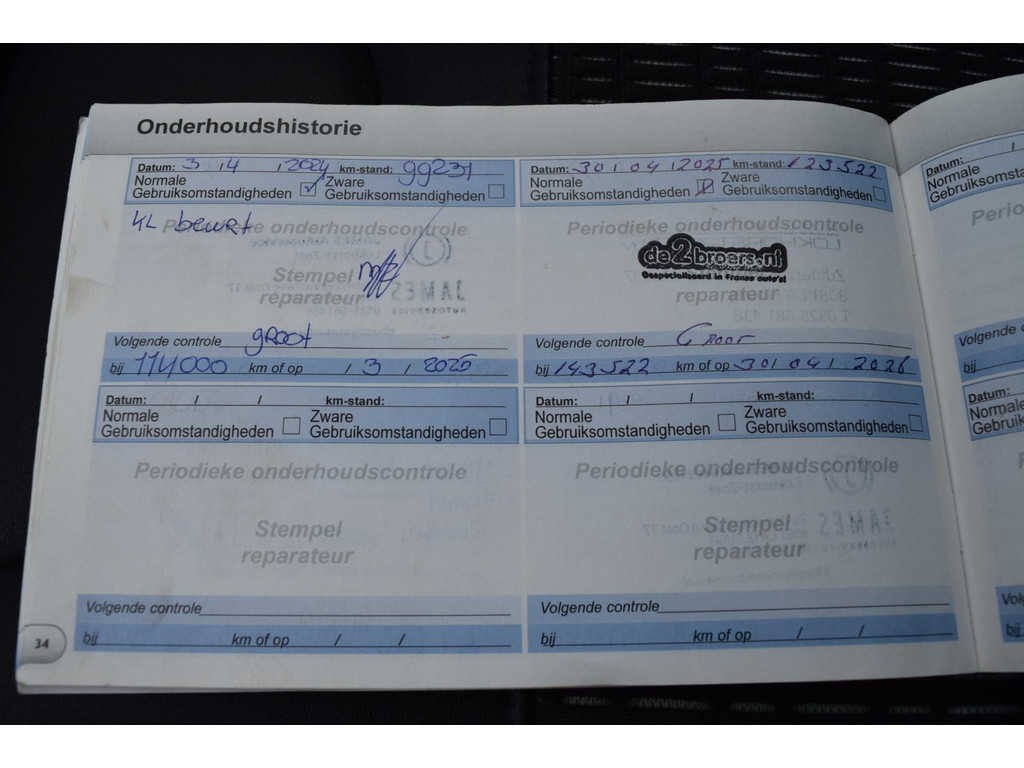 Onderhoudshistorie
Datum: 3 / 4 / 2024 km-stand: 99231
Normale Gebruiksomstandigheden Zware Gebruiksomstandigheden
KL beurt
Periodieke onderhoudscontrole
Stempel
reparateur
JAMES
AUTOSERVICE
Volgende controle groot
bij 114000 km of op / 3 / 2025
Datum: 30 / 04 / 2025 km-stand: 123522
Normale Gebruiksomstandigheden Zware Gebruiksomstandigheden
Periodieke onderhoudscontrole
de2broers.nl
Gespecialiseerd in Franse auto's!
reparateur
Volgende controle Groot
bij 143522 km of op 30 / 04 / 2026
Datum: / / km-stand:
Normale Gebruiksomstandigheden Zware Gebruiksomstandigheden
Periodieke onderhoudscontrole
Stempel
reparateur
Volgende controle
bij km of op / /
Datum: / / km-stand:
Normale Gebruiksomstandigheden Zware Gebruiksomstandigheden
Periodieke onderhoudscontrole
Stempel
reparateur
JAMES
Volgende controle
bij km of op / /
34
Datum: /
Normale
Volgende
bij
Datum:
bij